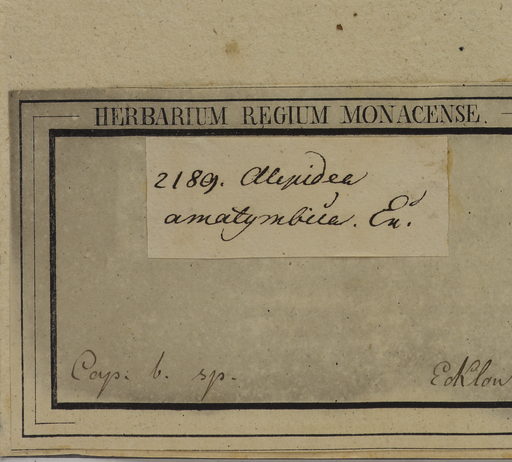 HERBARIUM REGIUM MONACENSE.
2189. Alepidea
amatymbica. En.
Cap: b. sp.
Ecklon